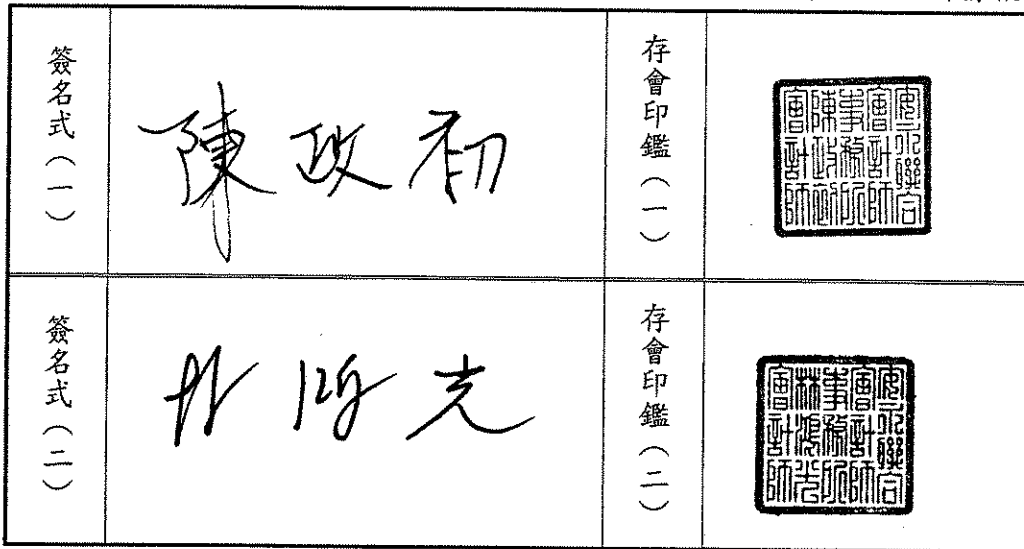 簽名式（一）
陳政初
存會印鑑（一）
安永聯合
會計師
事務所
陳政初
會計師
簽名式（二）
林鴻光
存會印鑑（二）
安永聯合
會計師
事務所
林鴻光
會計師